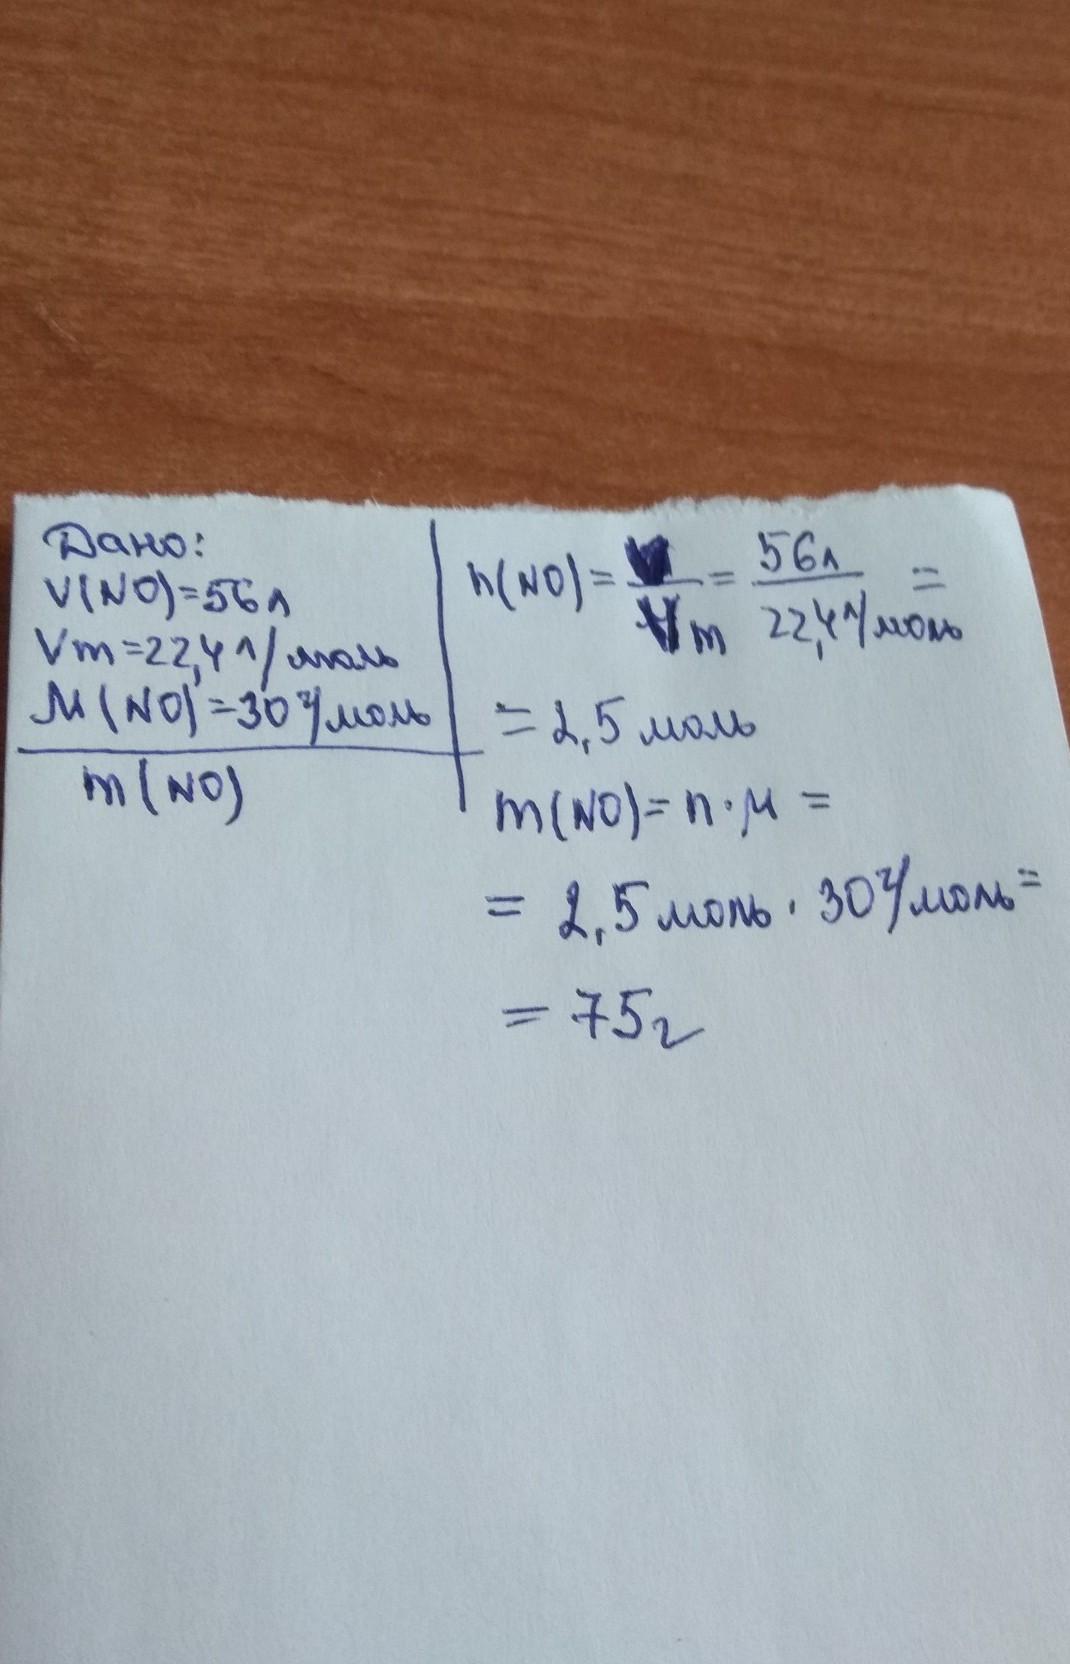 Дано:
V(NO)=56л
Vm=22,4 л/моль
M(NO)=30 г/моль
m(NO)
n(NO)= V/Vm = 56л/22,4 л/моль =
= 2,5 моль
m(NO)= n·M =
= 2,5 моль · 30 г/моль =
= 75г